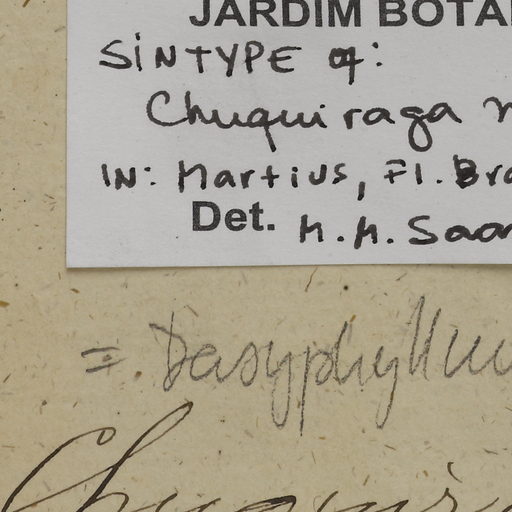 JARDIM BOTA
SINTYPE of:
Chuquiraga
IN: Martius, Fl. Bra
Det. M.M. Saa
= Dasyphyllu
Chuquira